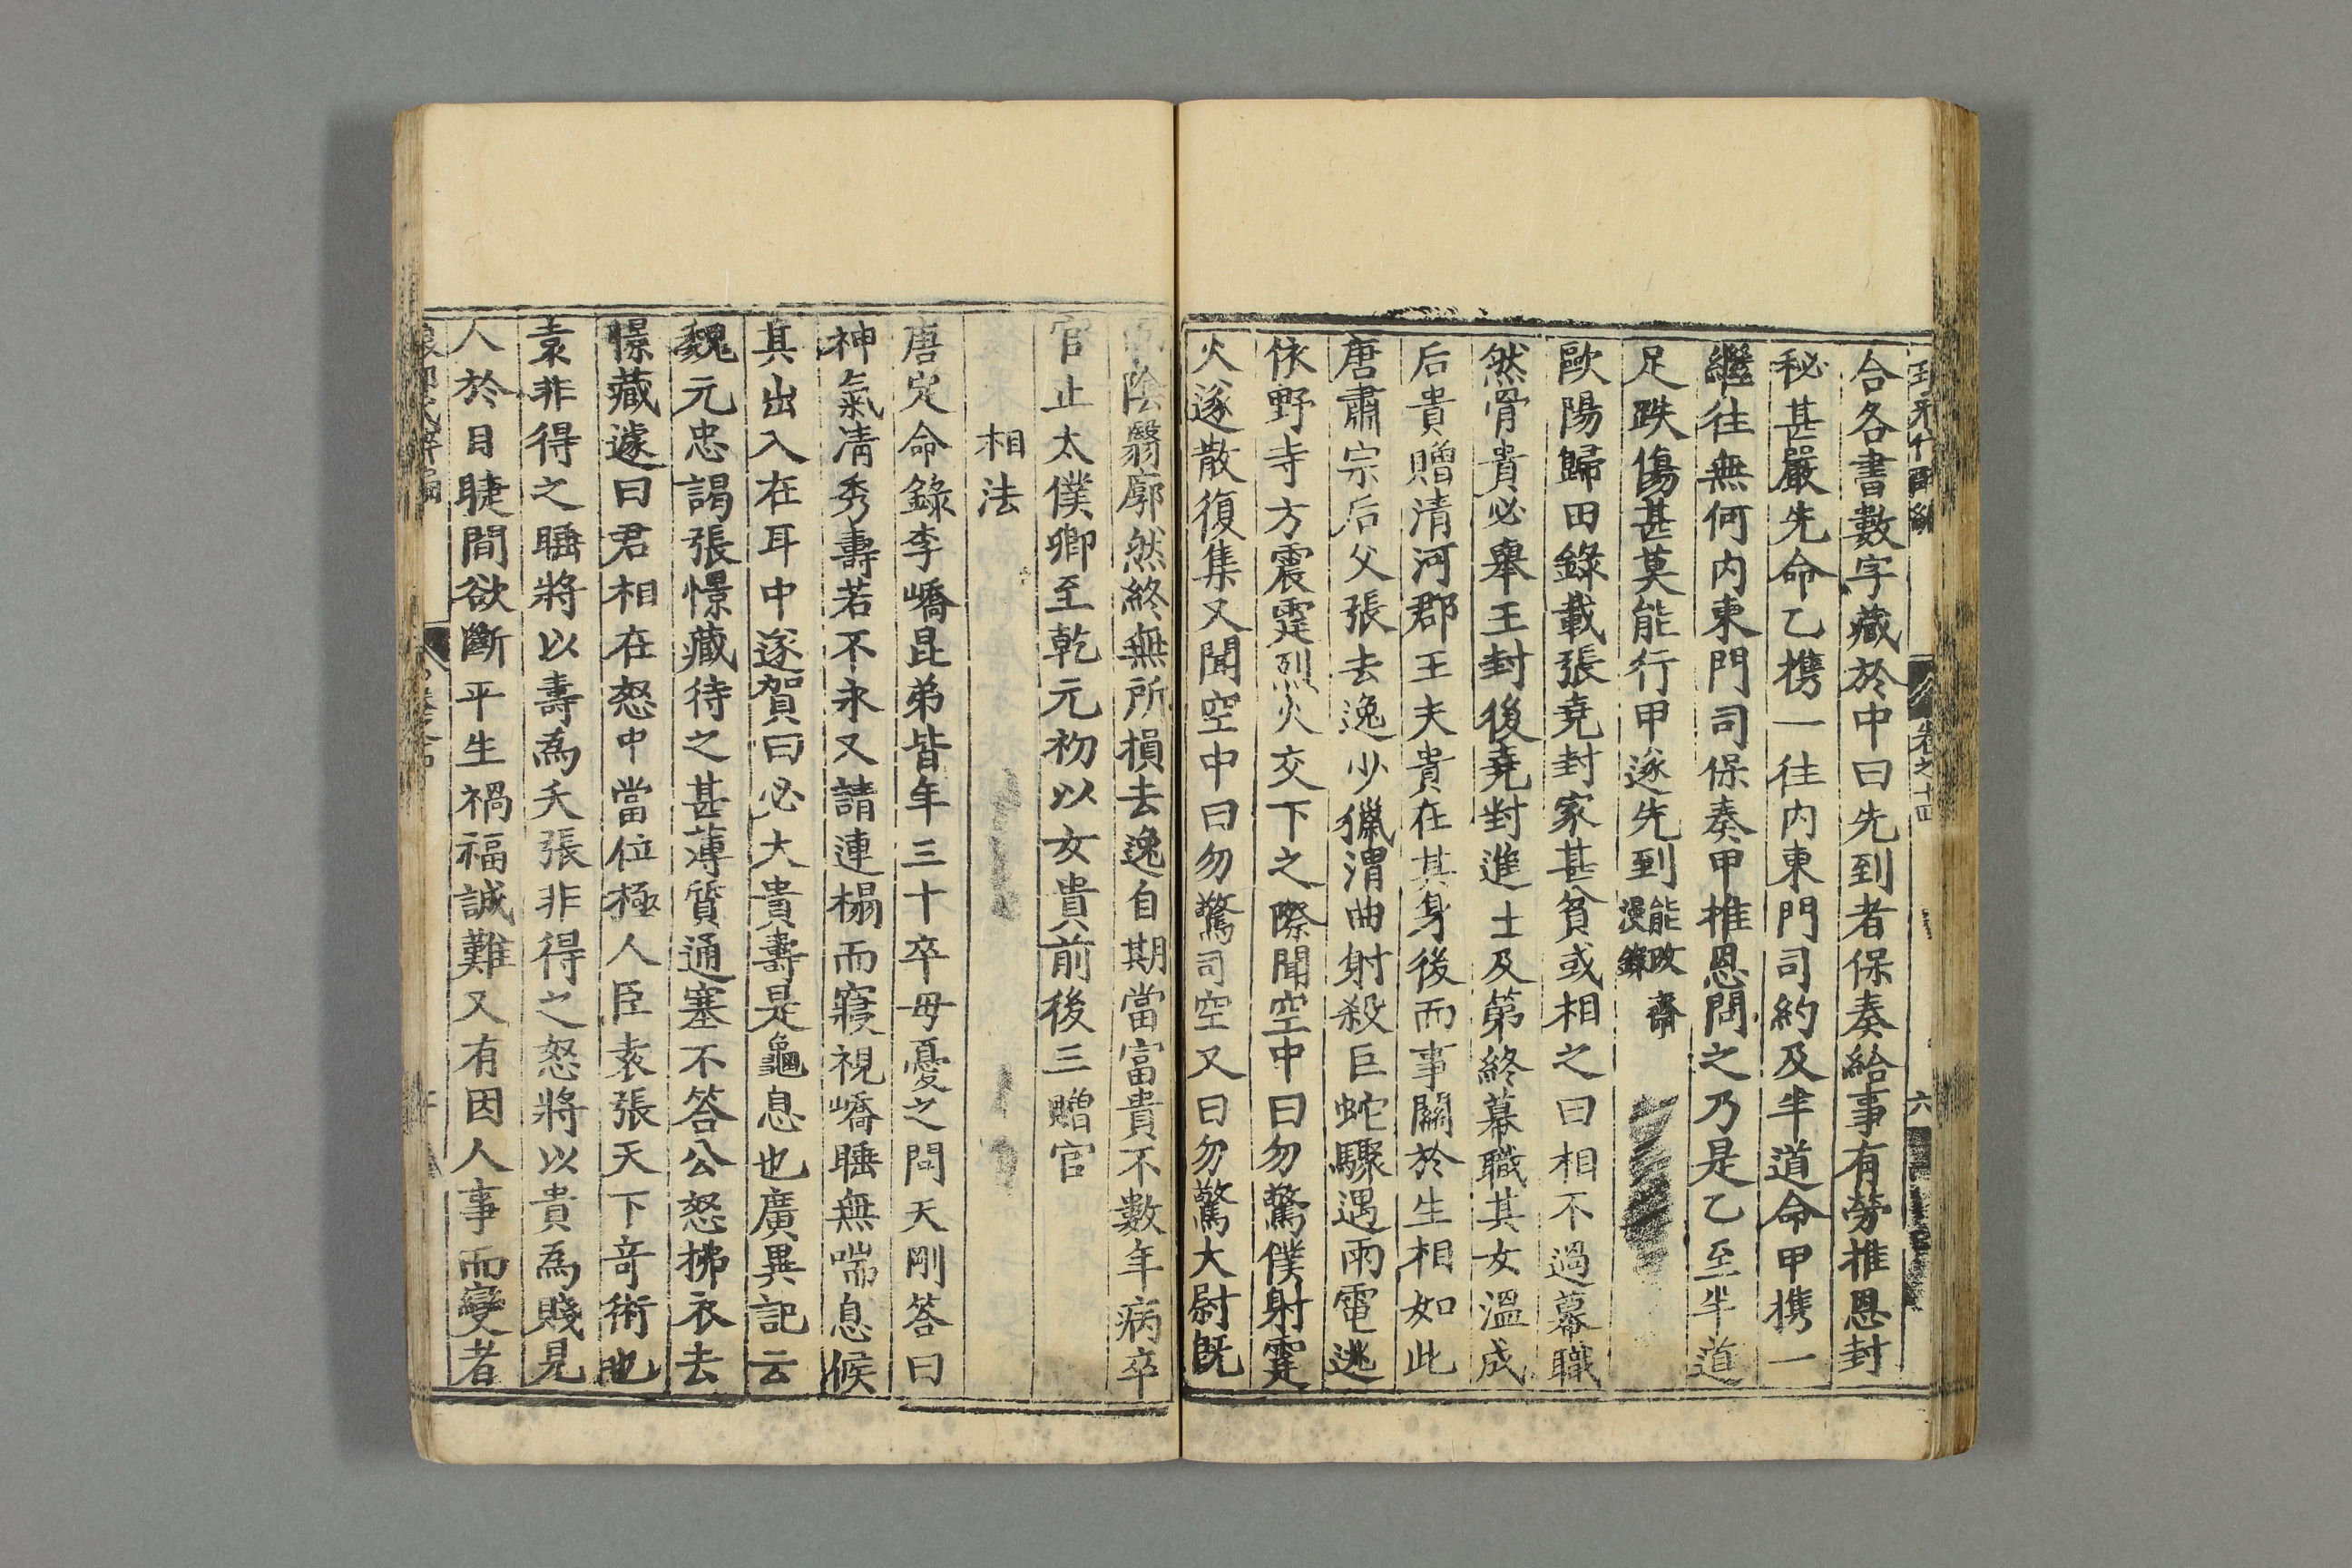 卷之十四
六
合各書數字藏於中曰先到者保奏給事有勞推恩封
秘甚嚴先命乙携一往内東門司約及半道命甲携一
繼往無何内東門司保奏甲推恩問之乃是乙至半道
足跌傷甚莫能行甲遂先到能改齋漫錄
歐陽歸田錄載張堯封家甚貧或相之曰相不過幕職
然骨貴必舉王封後堯封進士及第終幕職其女溫成
后貴贈清河郡王夫貴在其身後而事關於生相如此
唐肅宗后父張去逸少獵渭曲射殺巨蛇驟遇雨電逃
依野寺方震霆烈火交下之際聞空中曰勿驚僕射霆
火遂散復集又聞空中曰勿驚司空又曰勿驚大尉既
陰翳廓然終無所損去逸自期當富貴不數年病卒
官止太僕卿至乾元初以女貴前後三贈官
相法
唐定命錄李嶠昆弟皆年三十卒母憂之問天剛答曰
神氣清秀壽若不永又請連榻而寢視嶠睡無喘息候
其出入在耳中遂賀曰必大貴壽是龜息也廣異記云
魏元忠謁張憬藏待之甚薄質通塞不答公怒拂衣去
憬藏遽曰君相在怒中當位極人臣袁張天下竒術也
袁非得之睡將以壽爲夭張非得之怒將以貴爲賤見
人於目睫間欲斷平生禍福誠難又有因人事而變者